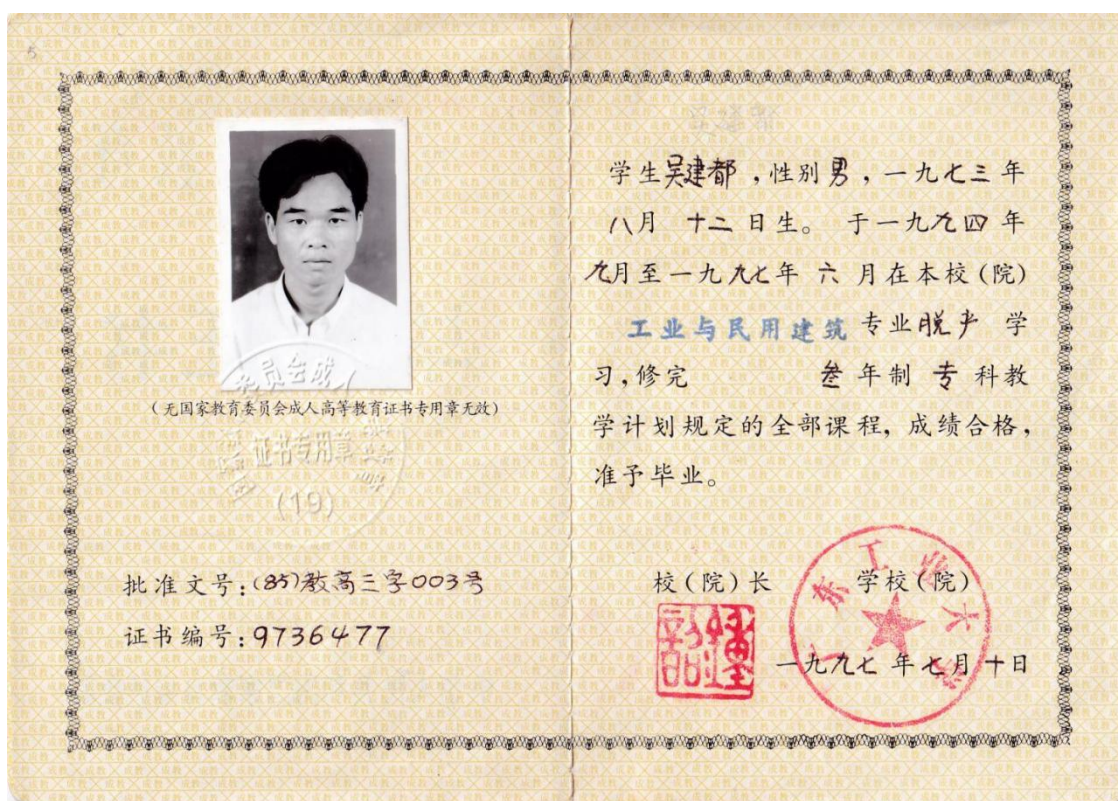 5
员会成人
(无国家教育委员会成人高等教育证书专用章无效)
证书专用章
(19)
批准文号:(85)教高三字003号
证书编号:9736477
学生吴建都,性别男,一九七三年
八月 十二 日生。 于一九九四年
九月至一九九七年 六 月在本校(院)
工业与民用建筑 专业脱产 学
习,修完 叁 年制 专 科教
学计划规定的全部课程, 成绩合格,
准予毕业。
校(院)长 学校(院)
广东工业大学
一九九七 年七月十日